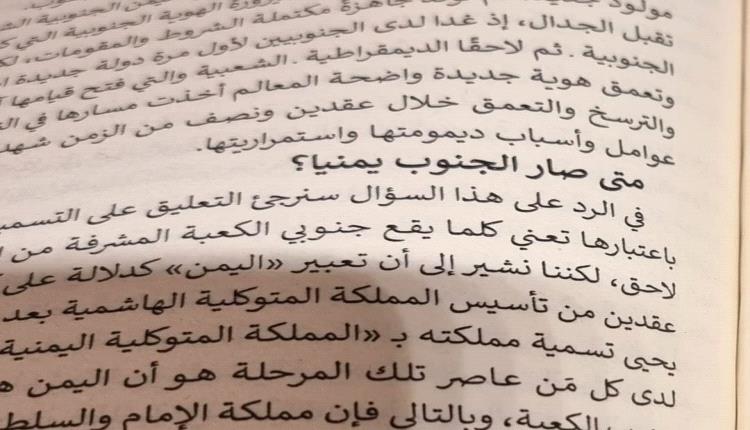 مولود
تقبل الجدال، إذ غدا لدى الجنوبيين لأول مرة دولة جديدة
الجنوبية . ثم لاحقًا الديمقراطية . الشعبية والتي فتح قيامها
وتعمق هوية جديدة واضحة المعالم أخذت مسارها في
والترسخ والتعمق خلال عقدين ونصف من الزمن
عوامل وأسباب ديمومتها واستمراريتها.
متى صار الجنوب يمنيا؟
في الرد على هذا السؤال سنرجئ التعليق على
باعتبارها تعني كلما يقع جنوبي الكعبة المشرفة من
لاحق، لكننا نشير إلى أن تعبير «اليمن» كدلالة على
عقدين من تأسيس المملكة المتوكلية الهاشمية بعد
يحيى تسمية مملكته بـ «المملكة المتوكلية اليمنية
لدى كل مَن عاصر تلك المرحلة هو أن اليمن
الكعبة، وبالتالي فإن مملكة الإمام